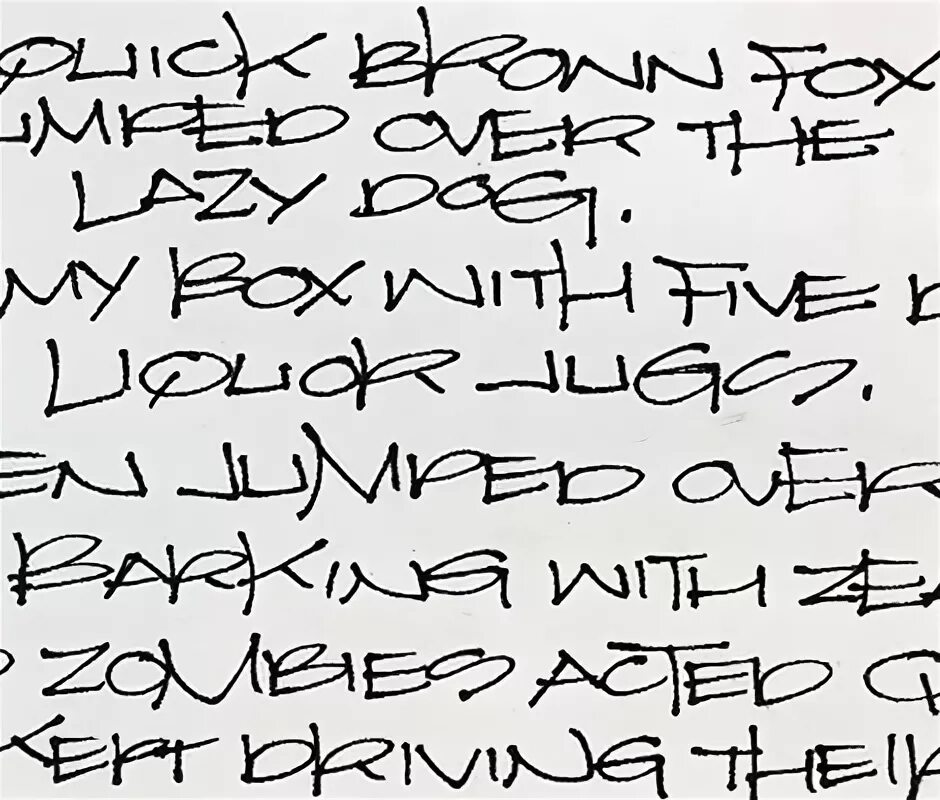 QUICK BROWN FOX
UMPED OVER THE
LAZY DOG.
MY BOX WITH FIVE D
LIQUOR JUGS.
EN JUMPED OVER
BARKING WITH ZEA
ZOMBIES ACTED Q
KEPT DRIVING THEIR